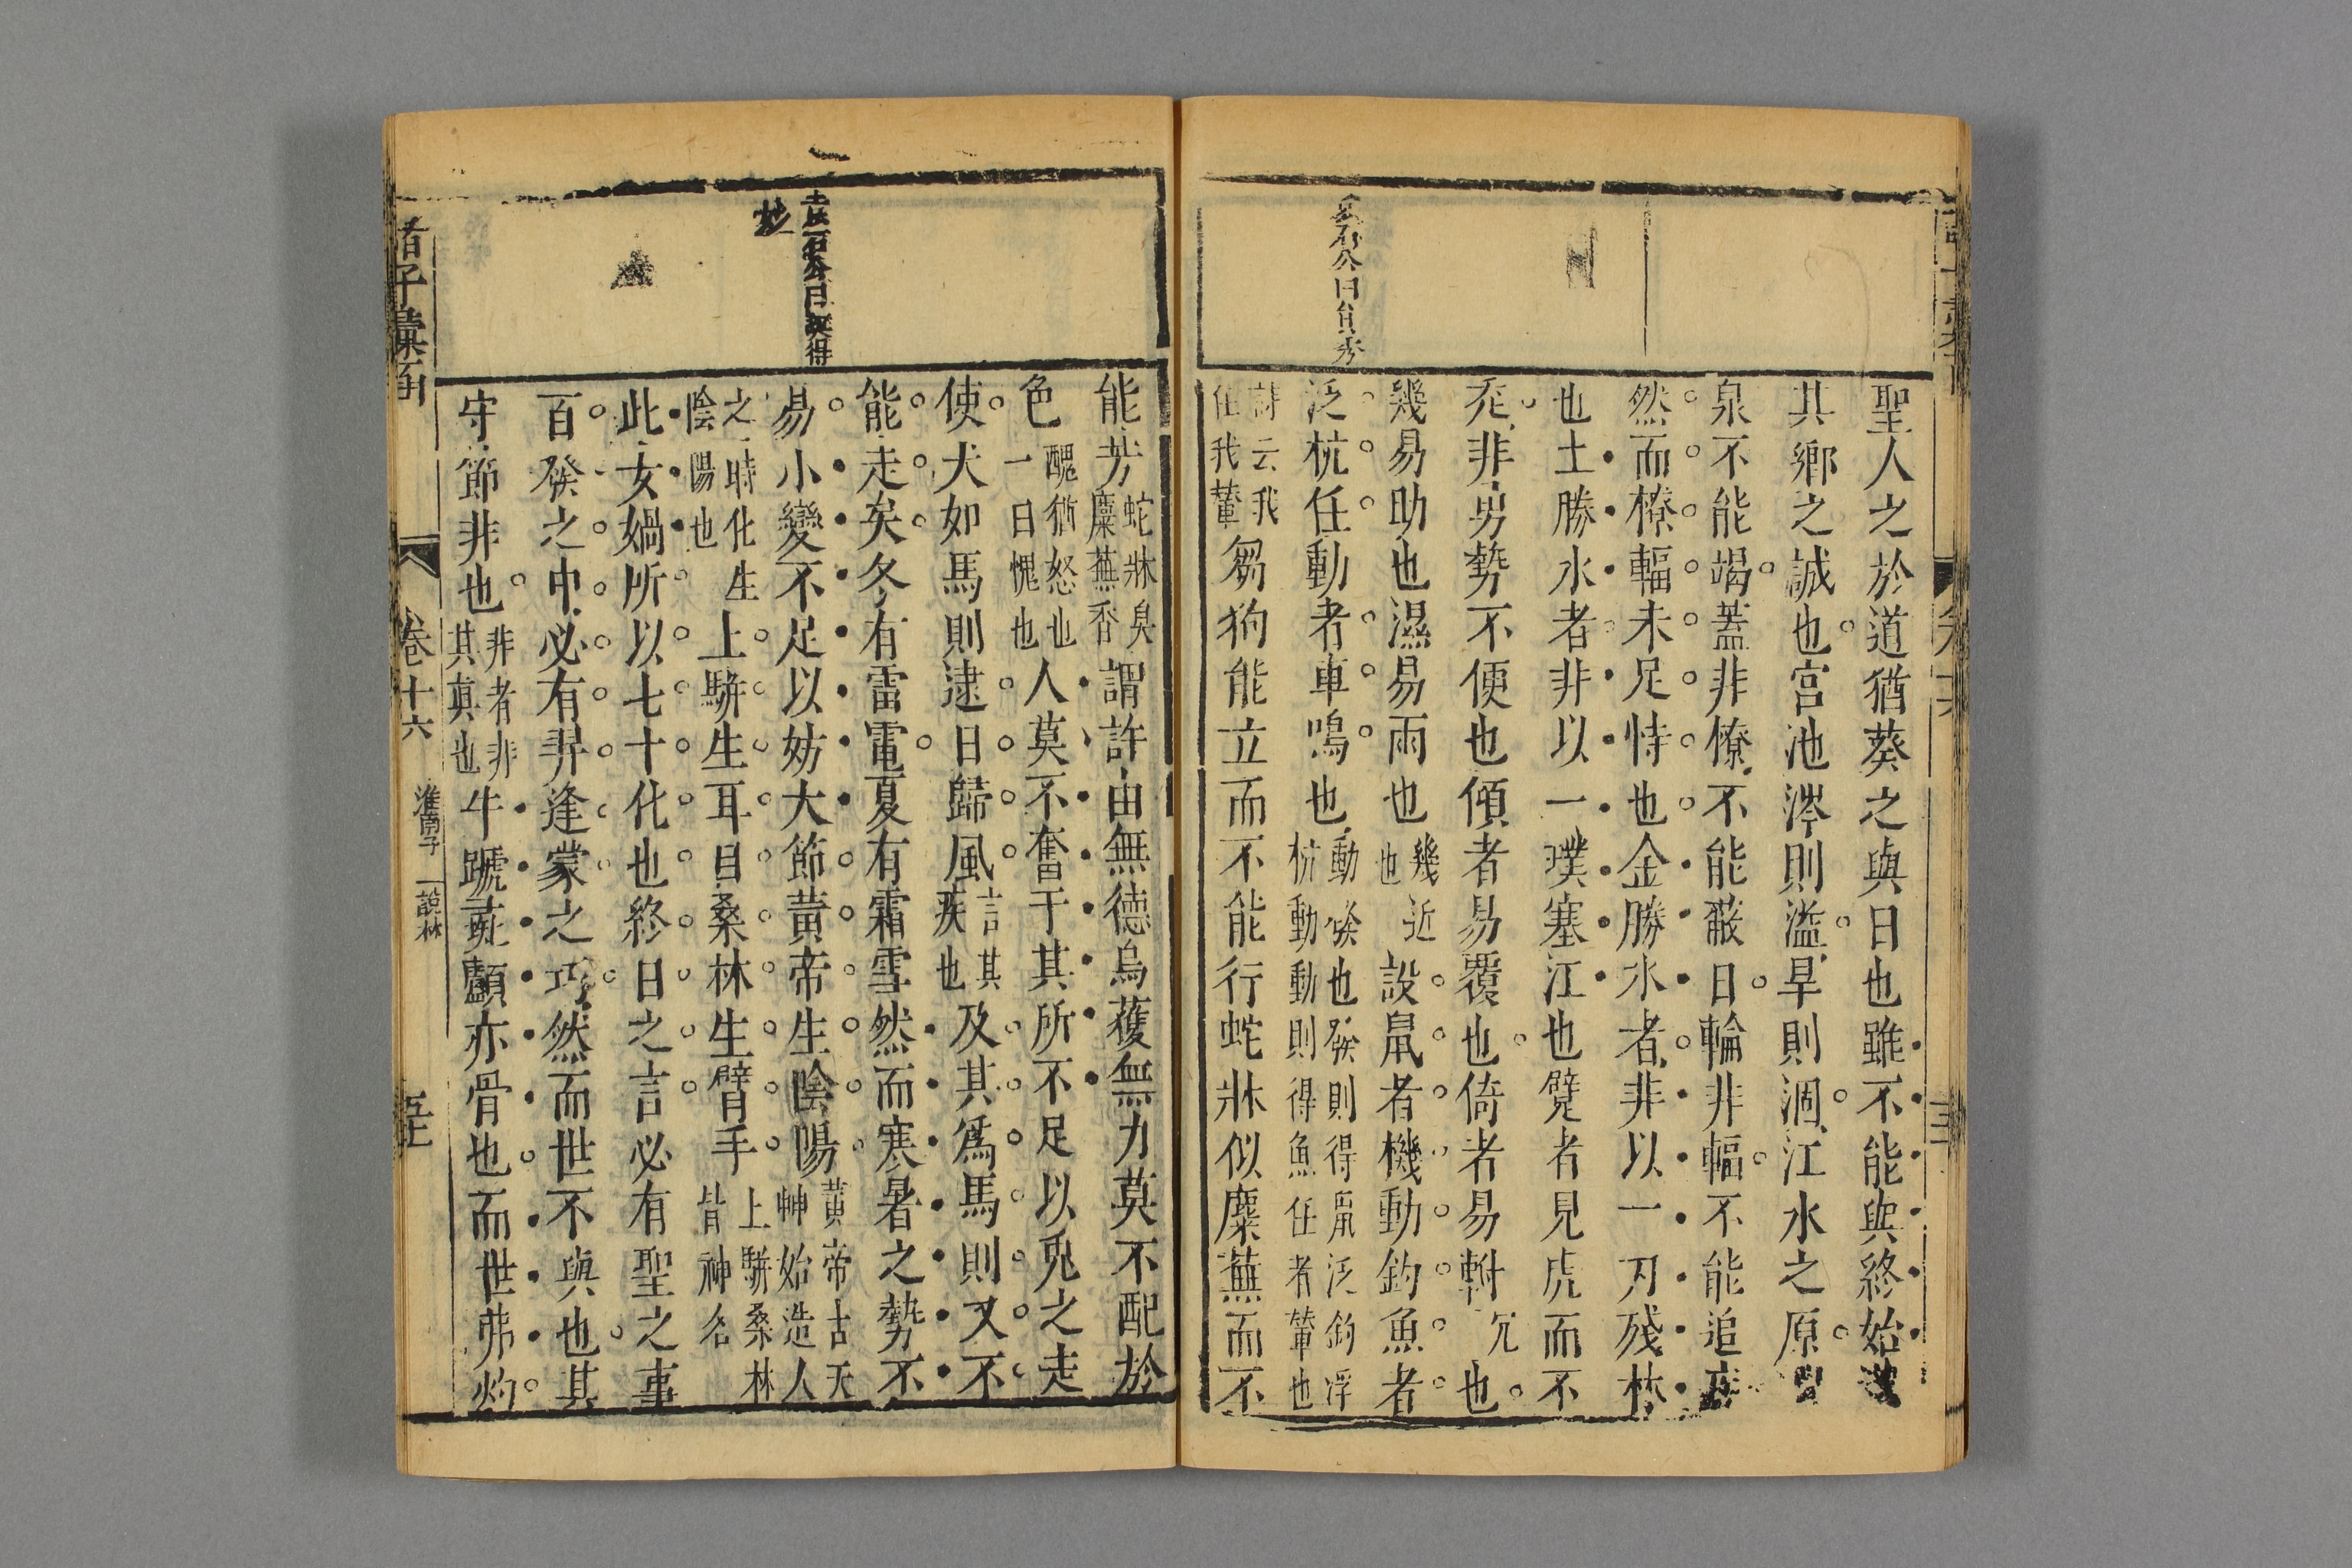 聖人之於道猶葵之與日也雖不能與終始哉
其鄉之誠也宮池涔則溢旱則涸江水之原
泉不能竭蓋非橑不能蔽日輪非輻不能追疾
然而橑輻未足恃也金勝木者非以一刃殘林
也土勝水者非以一璞塞江也躄者見虎而不
走非勇勢不便也傾者易覆也倚者易軵
冗
也
幾易助也濕易雨也
幾近
也
設鼠者機動釣魚者
泛杭任動者車鳴也
動發也發則得鼠泛釣浮
杭動動則得魚任者輦也
詩云我
任我輦
芻狗能立而不能行蛇牀似麋蕪而不
袁石公曰自秀
能芳
蛇牀臭
麋蕪香
謂許由無德烏獲無力莫不醜於
色
醜猶怒也
一曰愧也
人莫不奮于其所不足以兎之走
使犬如馬則逮日歸風
言其
疾也
及其爲馬則又不
能走矣冬有雷電夏有霜雪然而寒暑之勢不
易小變不足以妨大節黃帝生陰陽
黃帝古天
神始造人
之時化生
陰陽也
上駢生耳目桑林生臂手
上駢桑林
皆神名
此女媧所以七十化也終日之言必有聖之事
百發之中必有羿逢蒙之巧然而世不與也其
守節非也
非者非
其真也
牛蹏彘顱亦骨也而世弗灼
袁石公曰說得
妙
諸子彙函
卷十六
淮南子
說林